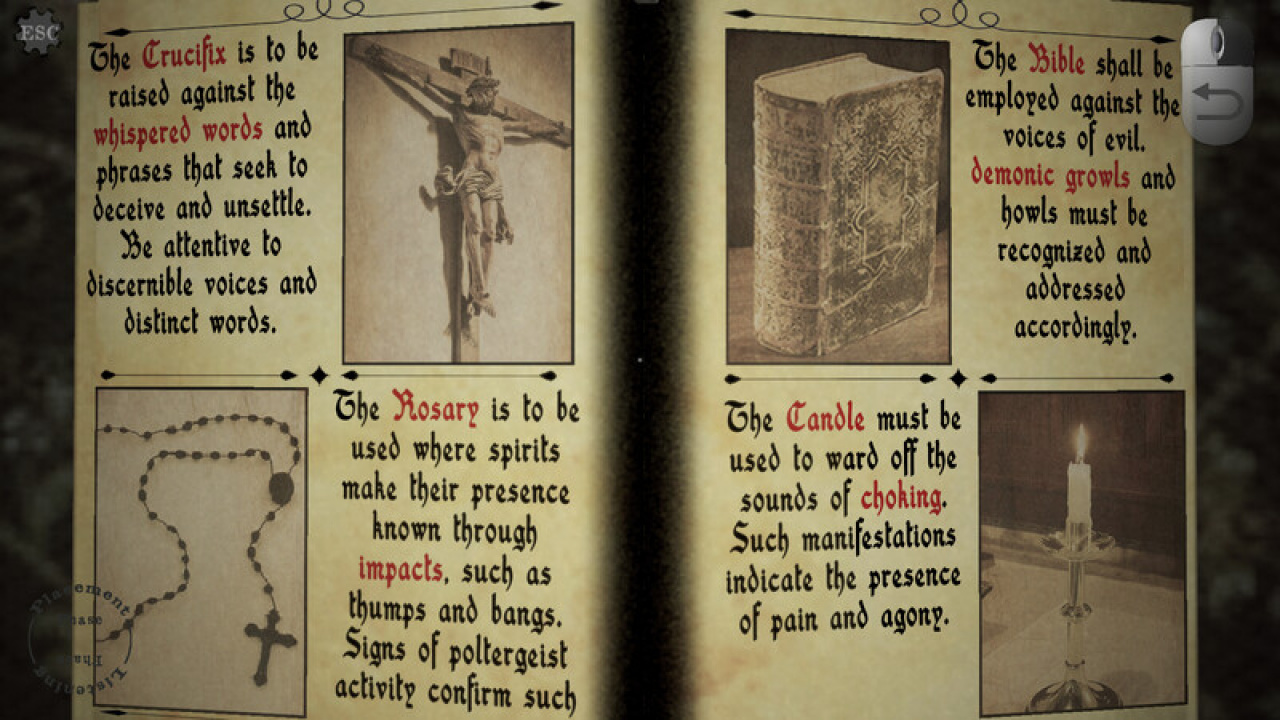 ESC
The Crucifix is to be
raised against the
whispered words and
phrases that seek to
deceive and unsettle.
Be attentive to
discernible voices and
distinct words.
The Rosary is to be
used where spirits
make their presence
known through
impacts, such as
thumps and bangs.
Signs of poltergeist
activity confirm such
Placement
Phase
Listening
The Bible shall be
employed against the
voices of evil.
demonic growls and
howls must be
recognized and
addressed
accordingly.
The Candle must be
used to ward off the
sounds of choking.
Such manifestations
indicate the presence
of pain and agony.